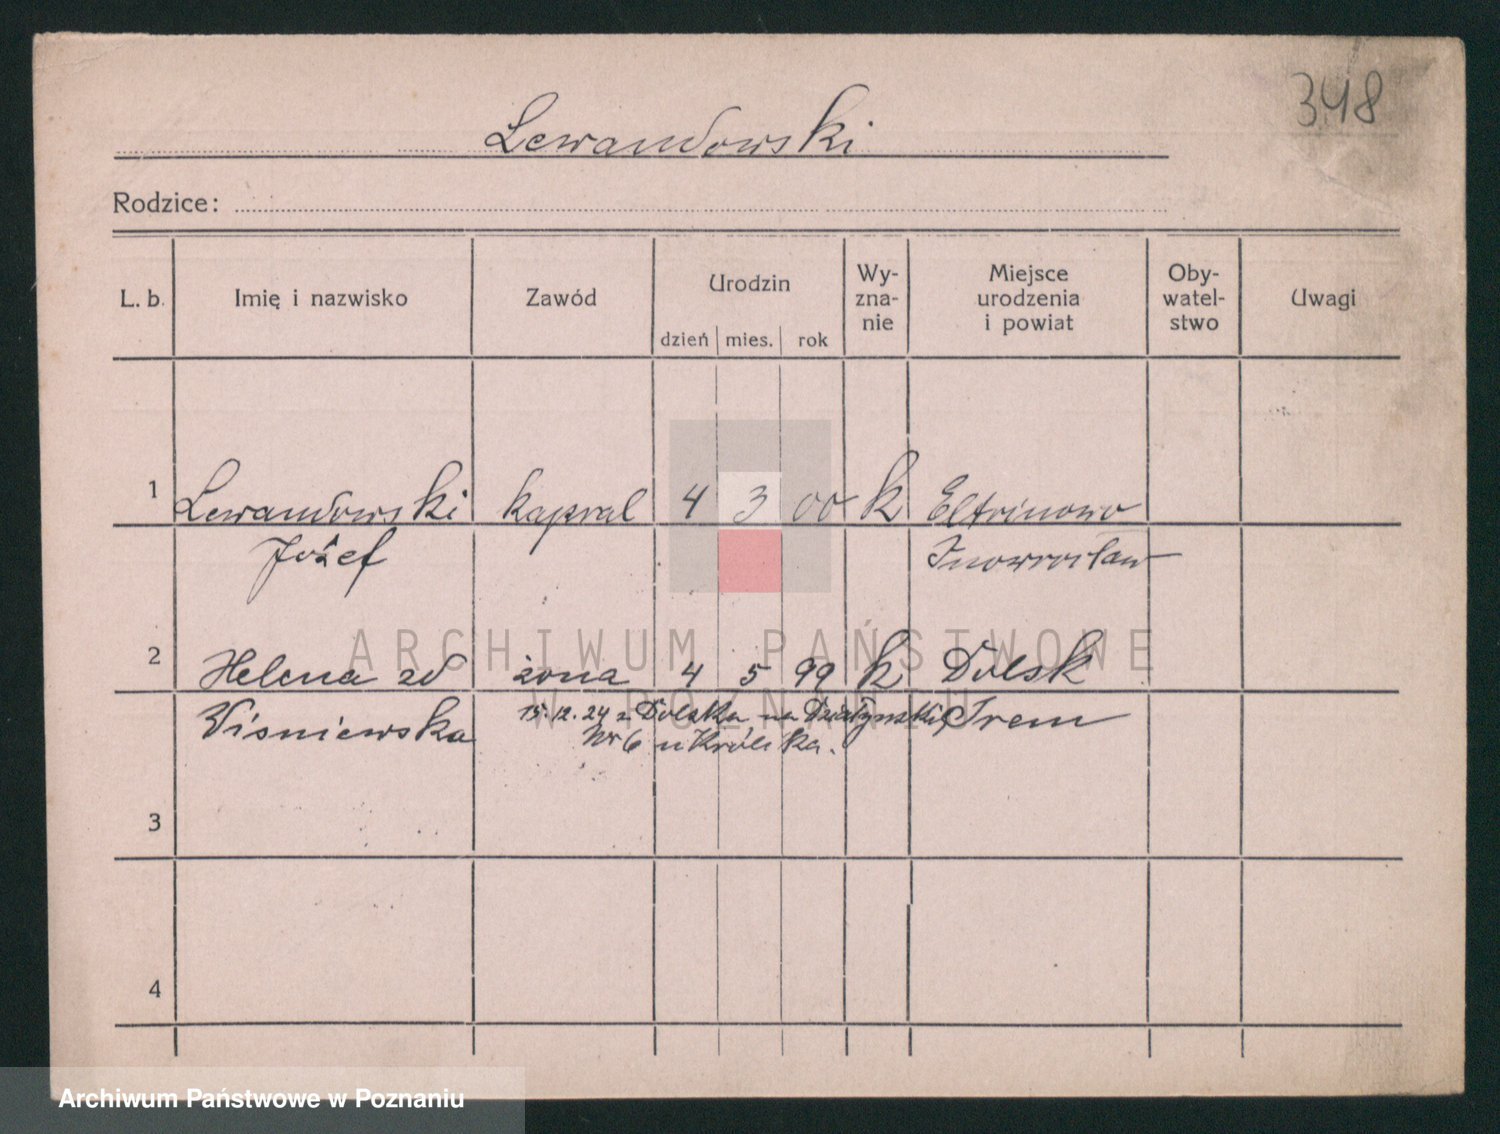 348
Lewandowski
Rodzice:
L. b. Imię i nazwisko Zawód Urodzin dzień mies. rok Wy-zna-nie Miejsce urodzenia i powiat Oby-watel-stwo Uwagi
1 Lewandowski kapral 4 3 00 k
Józef Inowrocław
2 Helena zd żona 4 5 99 k Dolsk
Wiśniewska 15.12.24 z Dolska na Działyńskich Śrem
Nr 6 u Królika.
3
4
ARCHIWUM PAŃSTWOWE
W POZNANIU
Archiwum Państwowe w Poznaniu